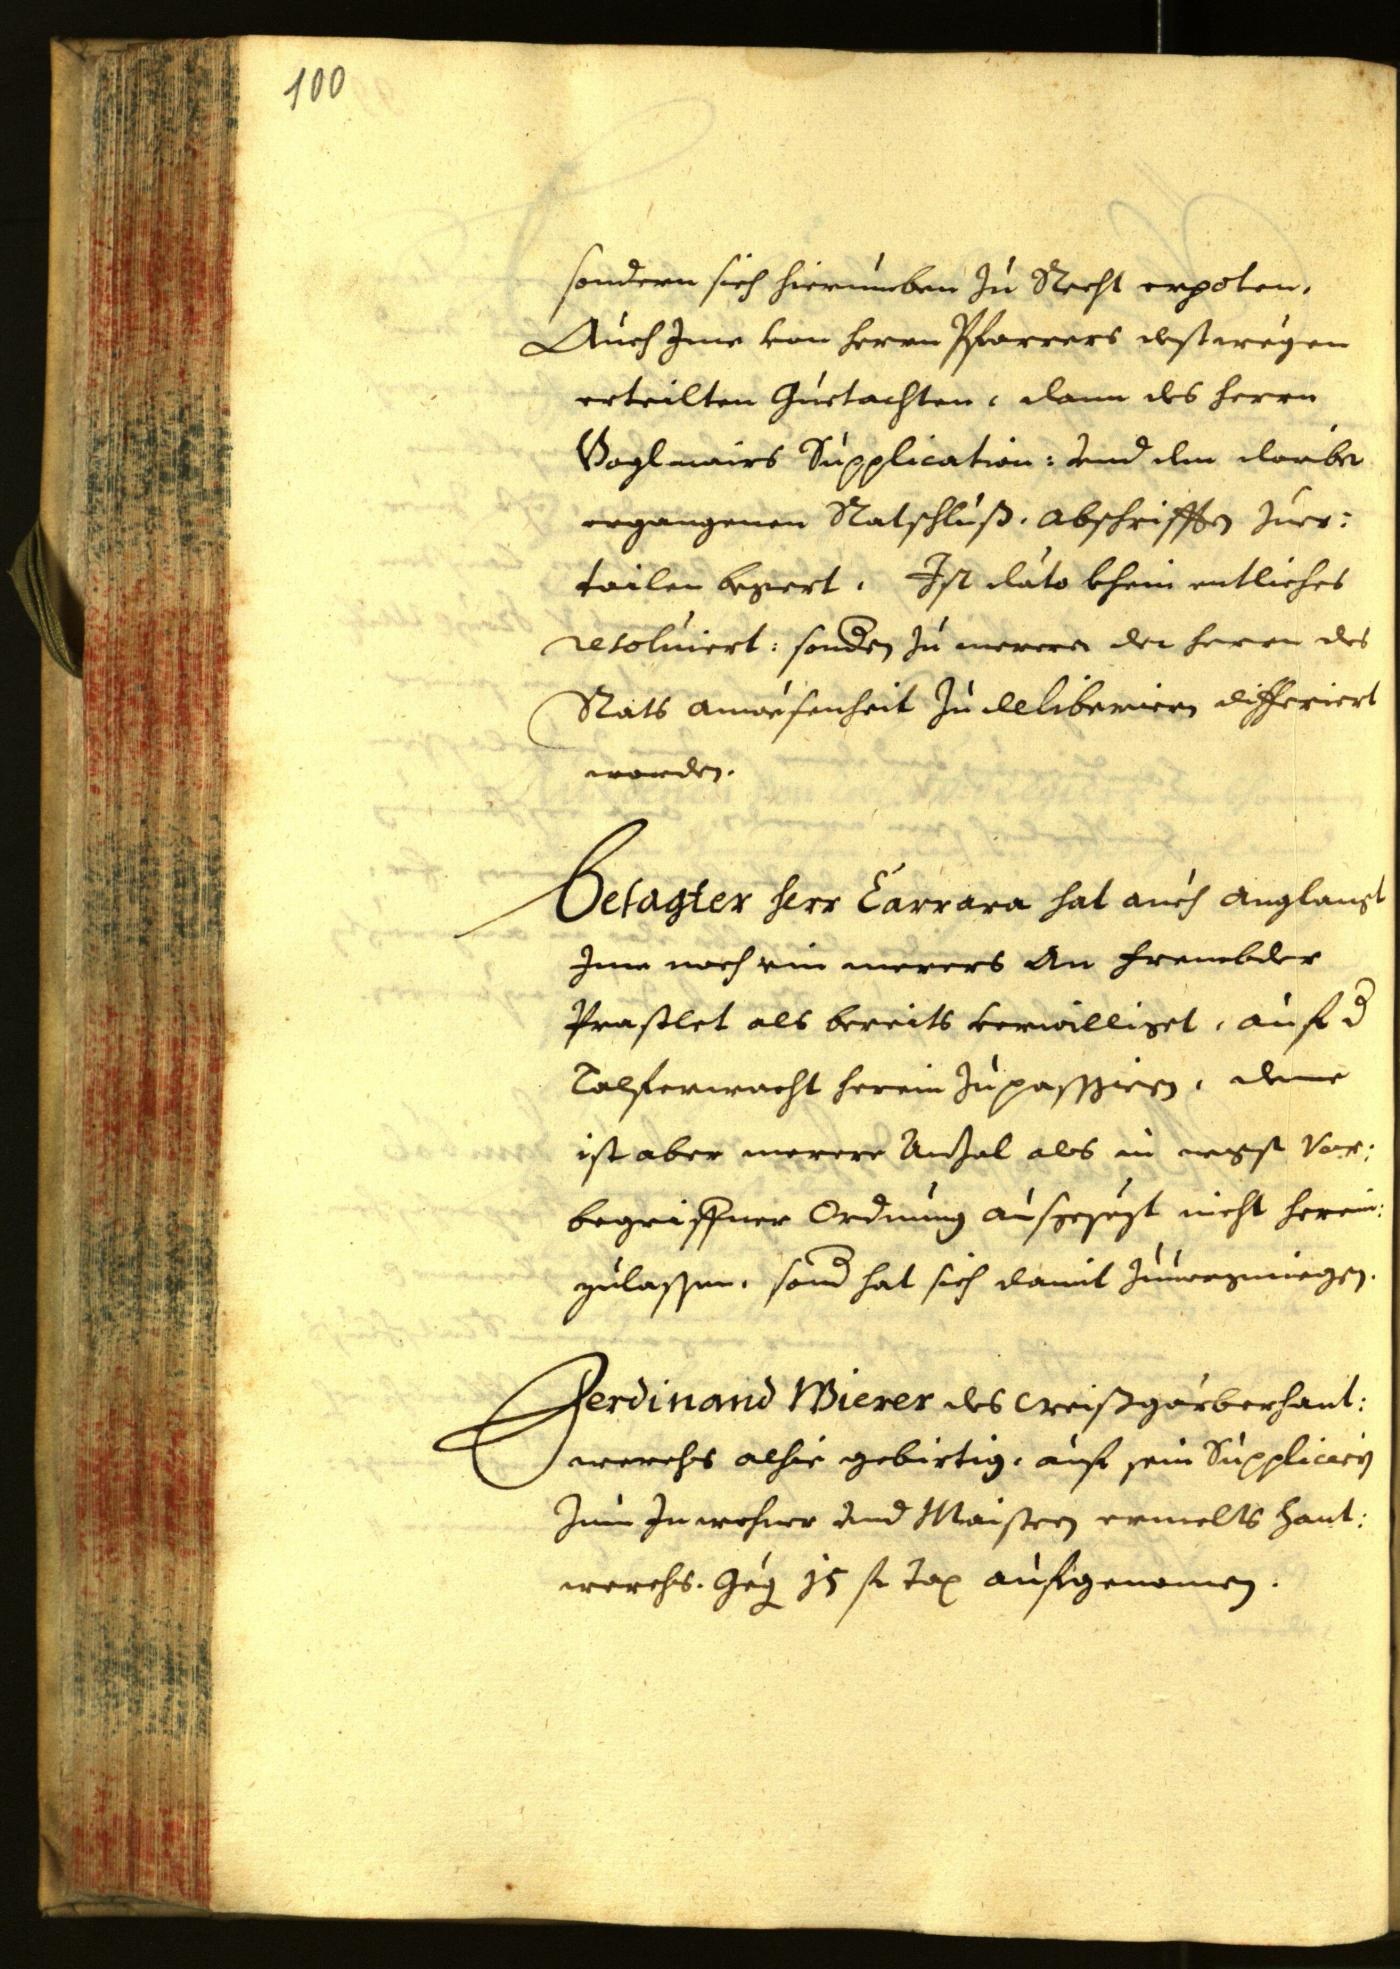 100
sondern sich hierumben Zu Recht erpoten.
Auch Ime von herrn Pfarrers desstwegen
erteilten Guetachten, dann des herrn
Voglmairs Supplication: vnd den darüber
ergangenen Ratschluß. Abschrifften Zuer:
tailen begert. Ist dato khein entliches
resoluiert: sondern Zu merern der herrn des
Rats anwesenheit Zu deliberiern differiert
worden.
Besagter herr Carrara hat auch anglangt
Ime noch ein merers an frembder
Praßlet als bereits verwilliget, auf der
Talferwacht herein Zupassiern, deme
ist aber merere Anzal als in negst Vor:
begriffner Ordnung außgesezt nicht herein:
zulassen. sonder hat sich damit Zuuergniegen.
Ferdinand Wierer des weißgärberhant:
werchs alhie gebirtig, auf sein Supplicirn
Zum Inwohner vnd Maistern ermelts hant:
werchs. Geg 15 fl Tax aufgenomen.